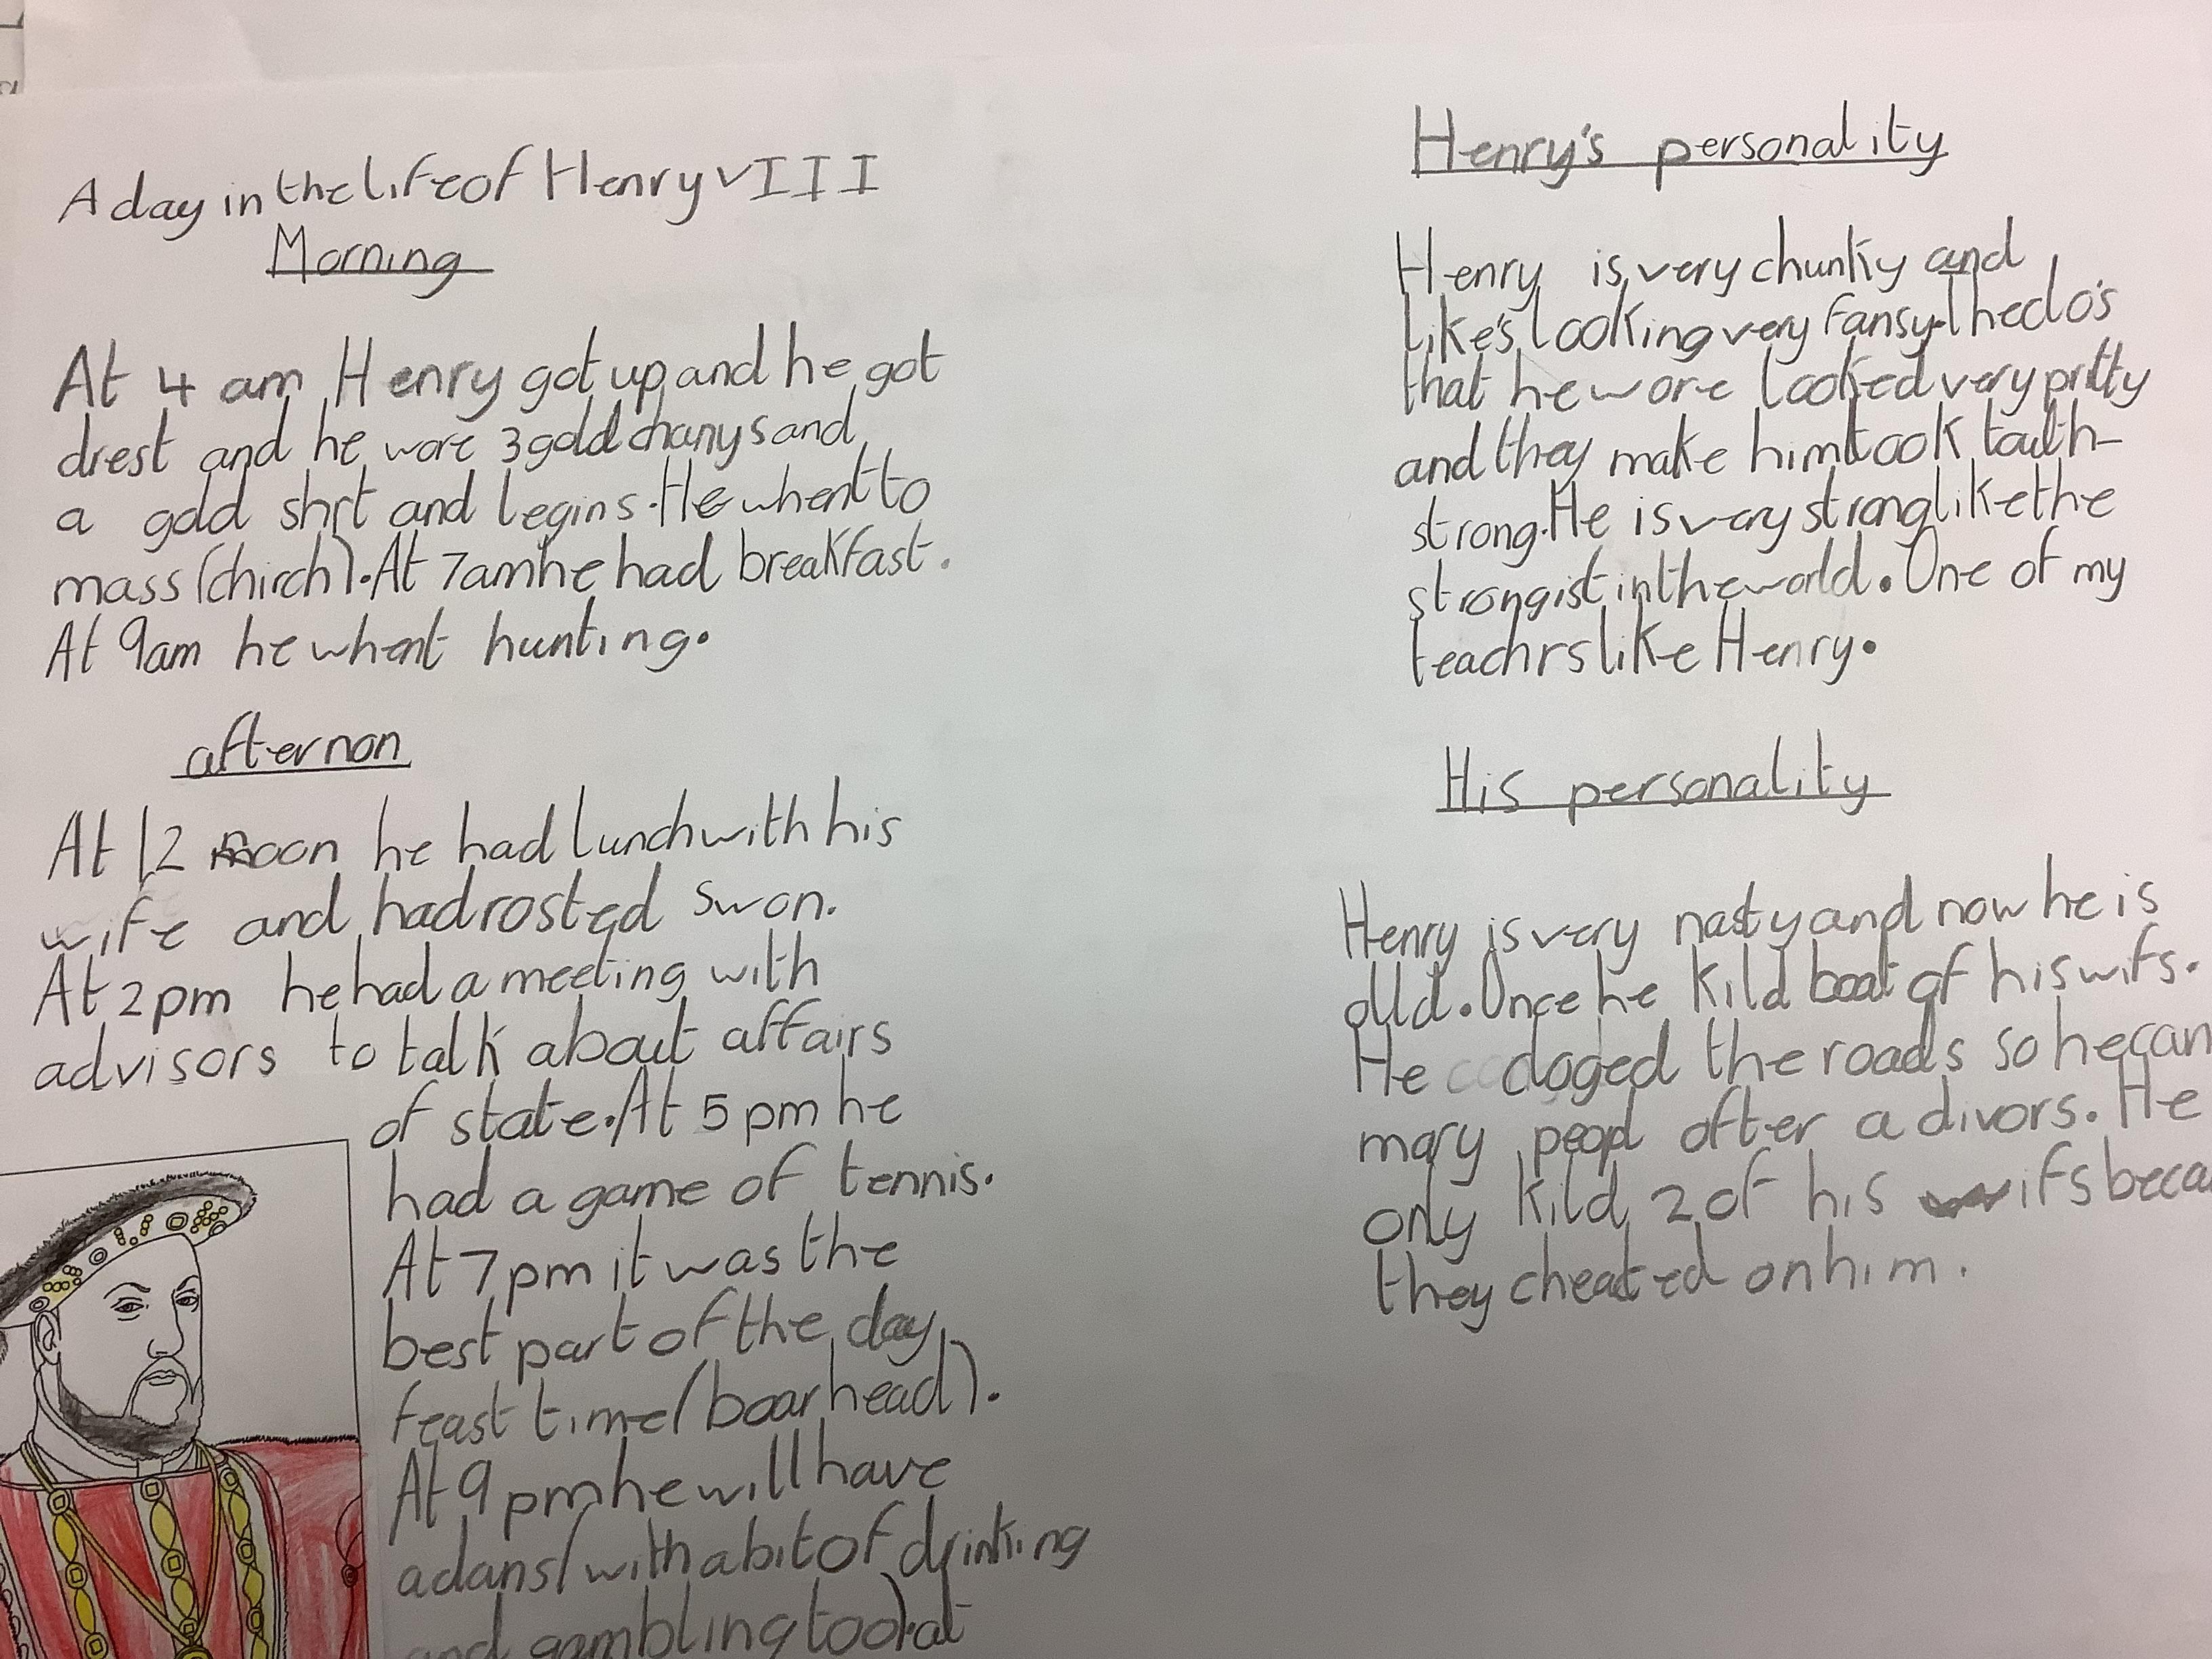 A day in the life of Henry VIII
Morning
At 4 am Henry got up and he got
drest and he wore 3 gold chanys and
a gold shrt and legins. He whent to
mass (chirch). At 7am he had breakfast.
At 9am he whent hunting.
afternon
At 12 noon he had lunch with his
wife and had rosted swon.
At 2pm he had a meeting with
advisors to talk about affairs
of state. At 5pm he
had a game of tennis.
At 7pm it was the
best part of the day,
feast time (boar head).
At 9pm he will have
a dans (with a bit of drinking
and gambling too) at
Henry's personality
Henry is very chunky and
like's looking very fansy. The clo's
that he wore looked very pritty
and they make him look
strong. He is very strong like the
strongist in the world. One of my
teachrs like Henry.
His personality
Henry is very nasty and now he is
olld. Once he kild of his wifs.
He cloged the roads so he can
mary peopl after a divors. He
only kild 2 of his wifs beca
they cheated on him.